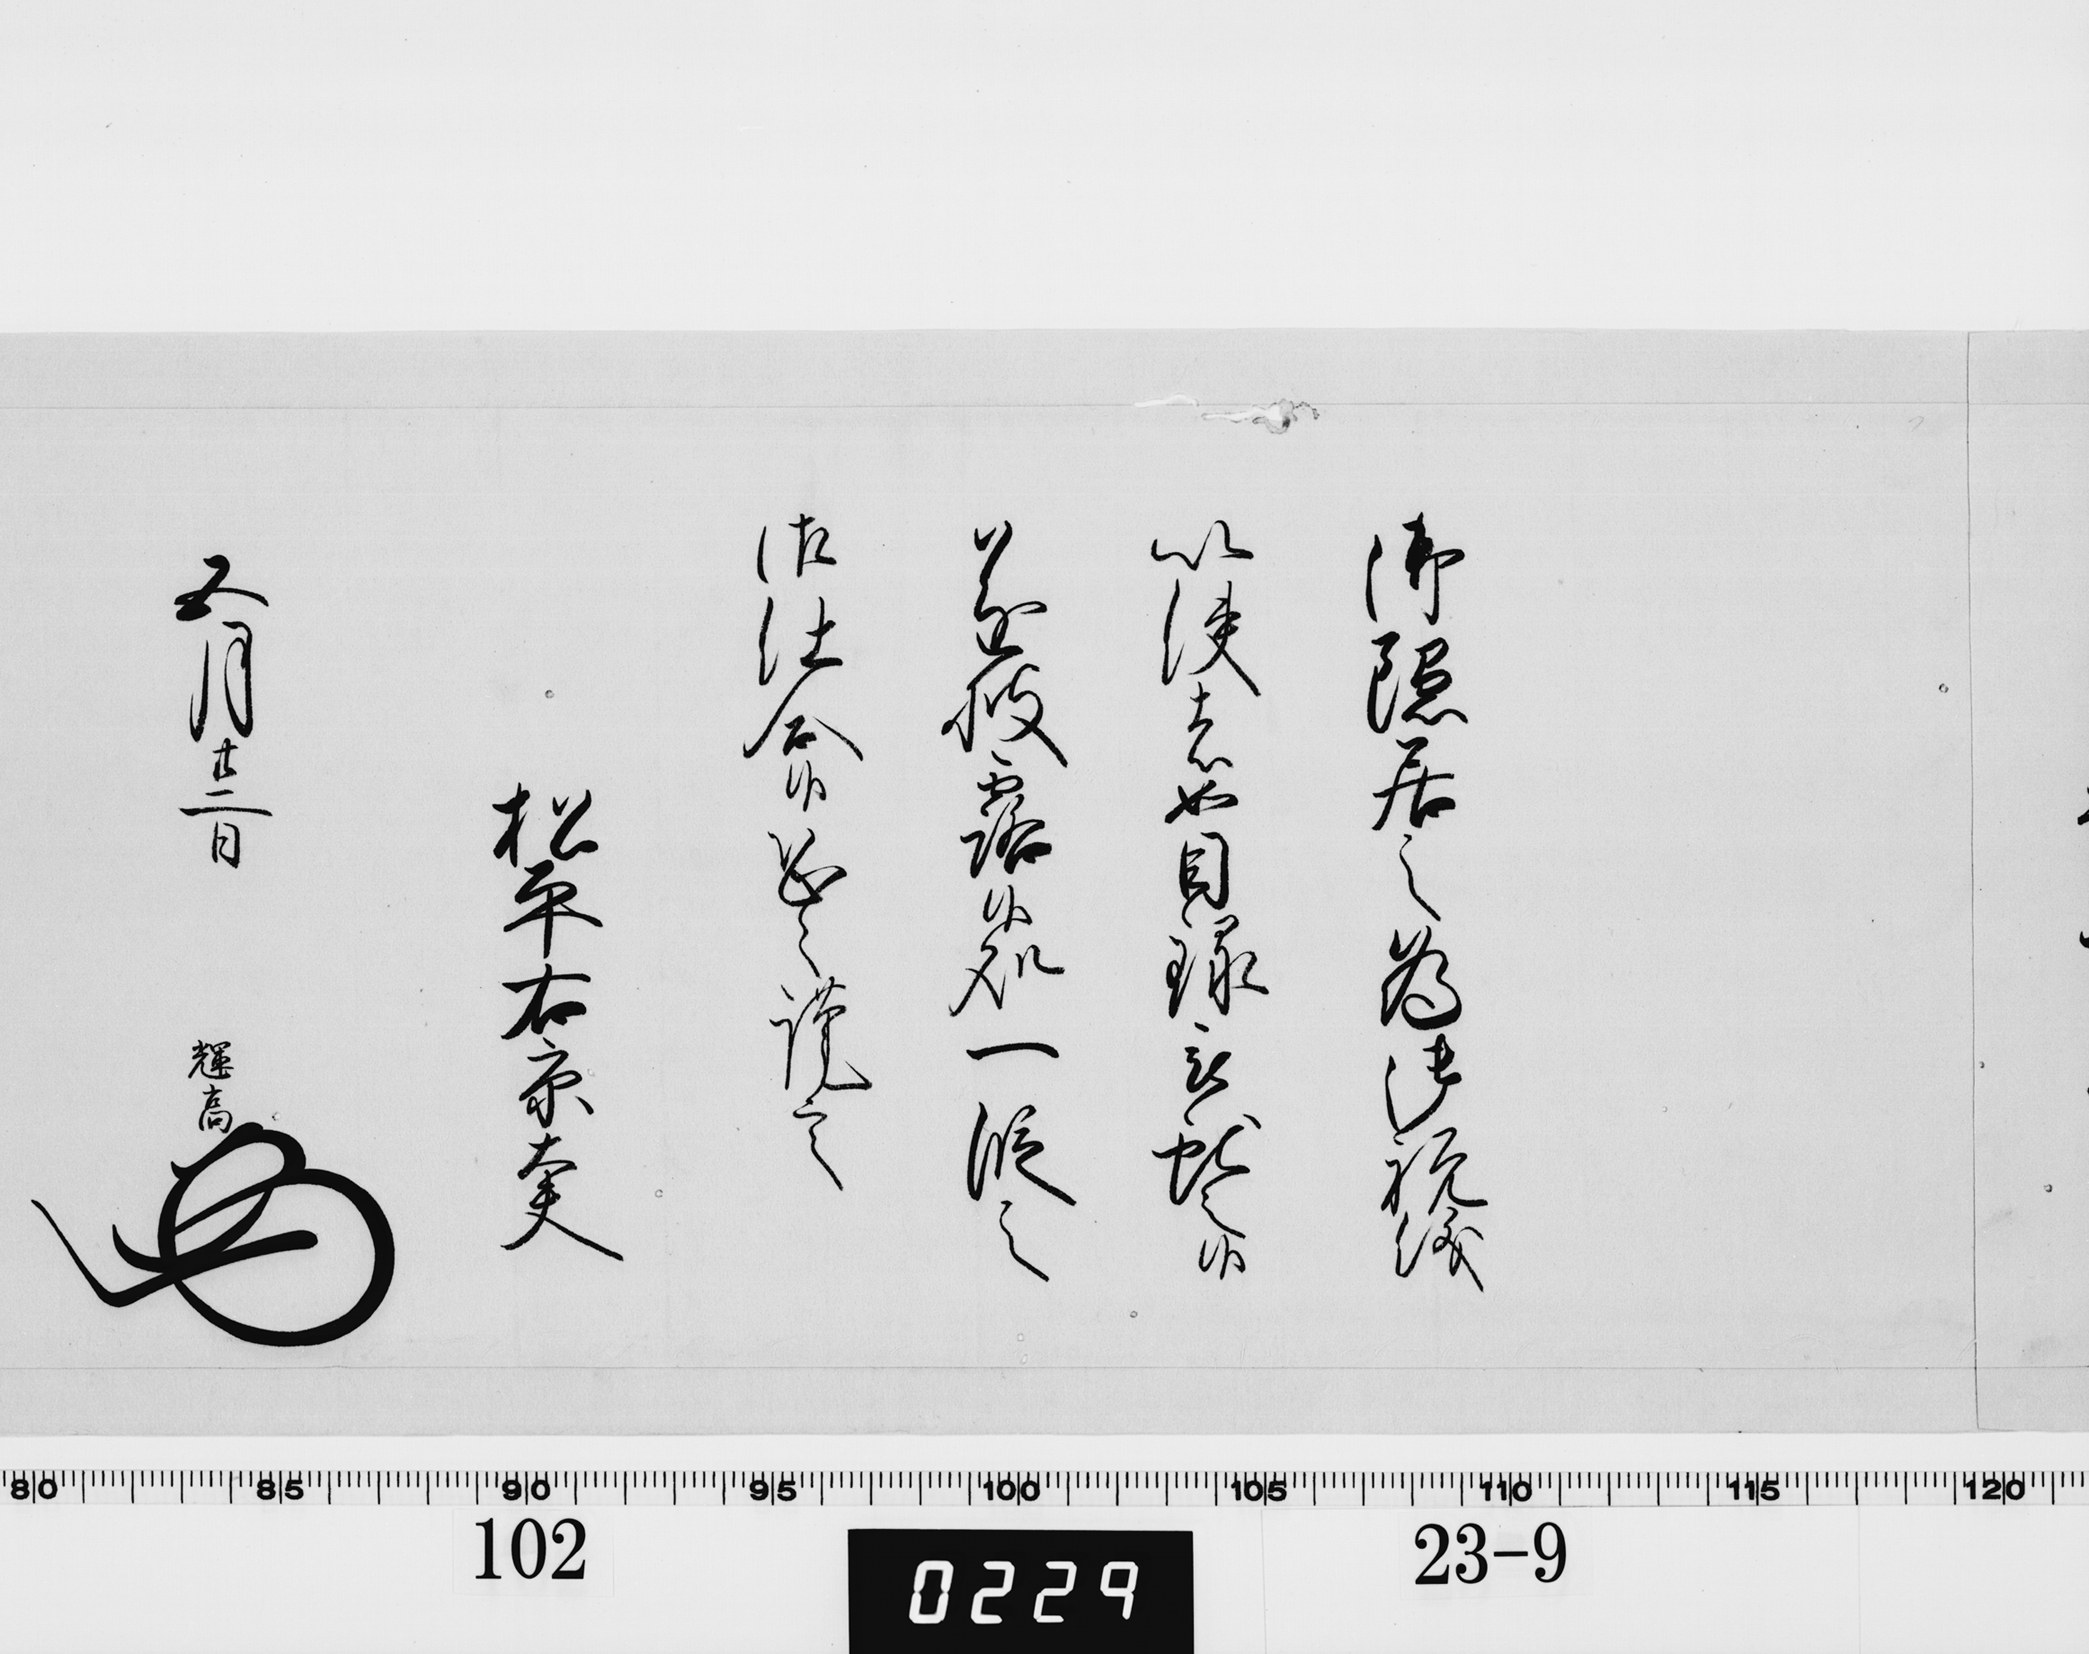 御隠居之為御祝儀
以使者如目録被献之候
首尾披露候処一段之
御仕合候恐々謹言
松平右京大夫
五月廿二日
輝高
80 85 90 95 100 105 110 115 120
102
0229
23-9